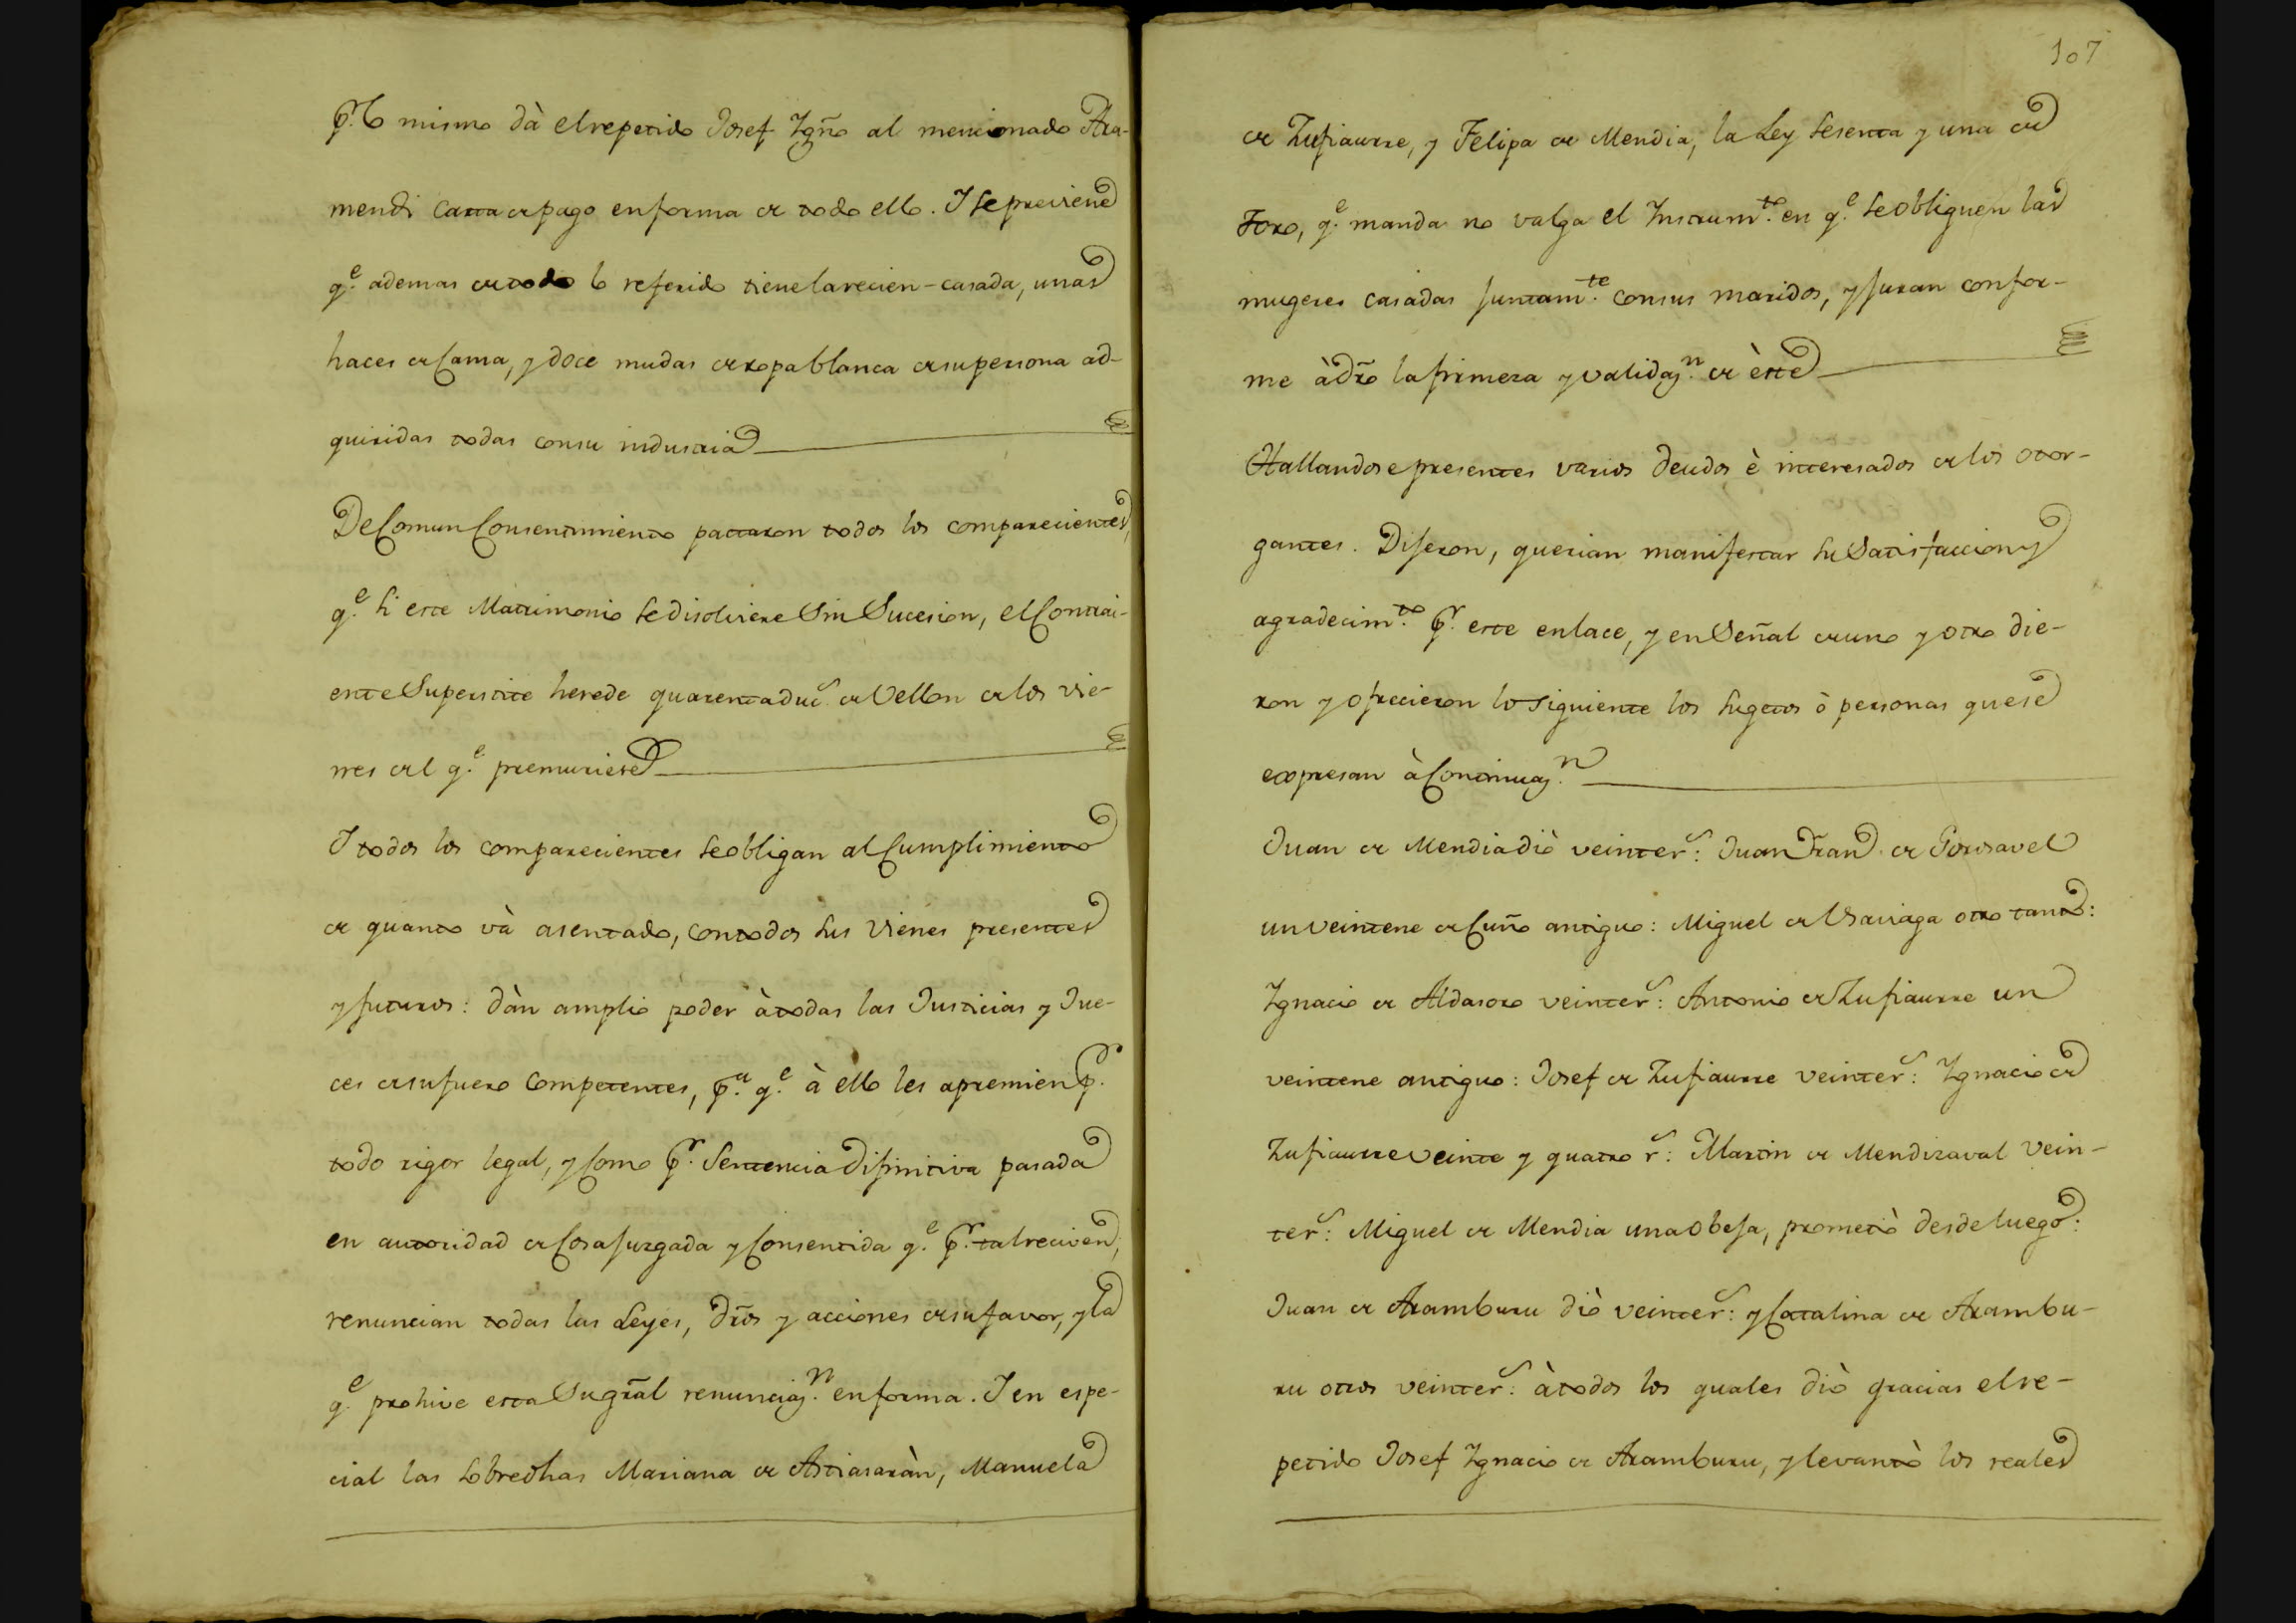 p.r lo mismo dà el repetido Josef Ygñ.o al mencionado Ara-
mendi Carta de pago en forma de todo ello. Y se previene
q.e ademas de todo lo referido tiene la recien-casada, unas
haces de Cama, y doce mudas de ropa blanca de su persona ad-
quiridas todas con su industria
De Comun Consentimiento pactaron todos los comparecientes,
q.e si este Matrimonio se disolviere Sin Sucesion, el Contrai-
ente Superstite herede quarenta duc.s de Vellon de los vie-
nes del q.e premuriere
Y todos los comparecientes se obligan al Cumplimiento
de quanto và asentado, con todos sus Vienes presentes
y futuros: dàn amplio poder à todas las Justicias y Jue-
ces de su fuero Competentes, p.a q.e à ello les apremien p.r
todo rigor legal, y Como p.r Sentencia Difinitiva pasada
en autoridad de Cosa Juzgada y Consentida q.e p.r tal reciven,
renuncian todas las Leyes, Dr̃os y acciones de su favor, y la
q.e prohive esta Su gr̃al renunciaz.n en forma. Y en espe-
cial las Sobredhas Mariana de Astiasaràn, Manuela
107
de Zufiaurre, y Felipa de Mendia, la Ley Sesenta y una de
Toro, q.e manda no valga el Instrum.to en q.e se obliguen las
mugeres casadas Juntam.te con sus maridos, y Juran confor-
me à dr̃o la primera y validaz.n de èste
Hallandose presentes varios deudos è interesados de los otor-
gantes. Dijeron, querian manifestar su Satisfaccion y
agradecim.to p.r este enlace, y en Señal de uno y otro die-
ron y ofrecieron lo siguiente los Sugetos ò personas que se
expresan à Continuaz.n
Juan de Mendia diò veinte r.s: Juan Fran.co de Gorosavel
un veintene de Cuño antiguo: Miguel de Usariaga otro tanto:
Ygnacio de Aldasoro veinte r.s: Antonio de Zufiaurre un
veintene antiguo: Josef de Zufiaurre veinte r.s: Ygnacio de
Zufiaurre veinte y quatro r.s: Martin de Mendizaval vein-
te r.s: Miguel de Mendia una Obeja, prometiò desde luego:
Juan de Aramburu diò veinte r.s: y Catalina de Arambu-
ru otros veinte r.s: à todos los quales diò gracias el re-
petido Josef Ygnacio de Aramburu, y levantò los reales